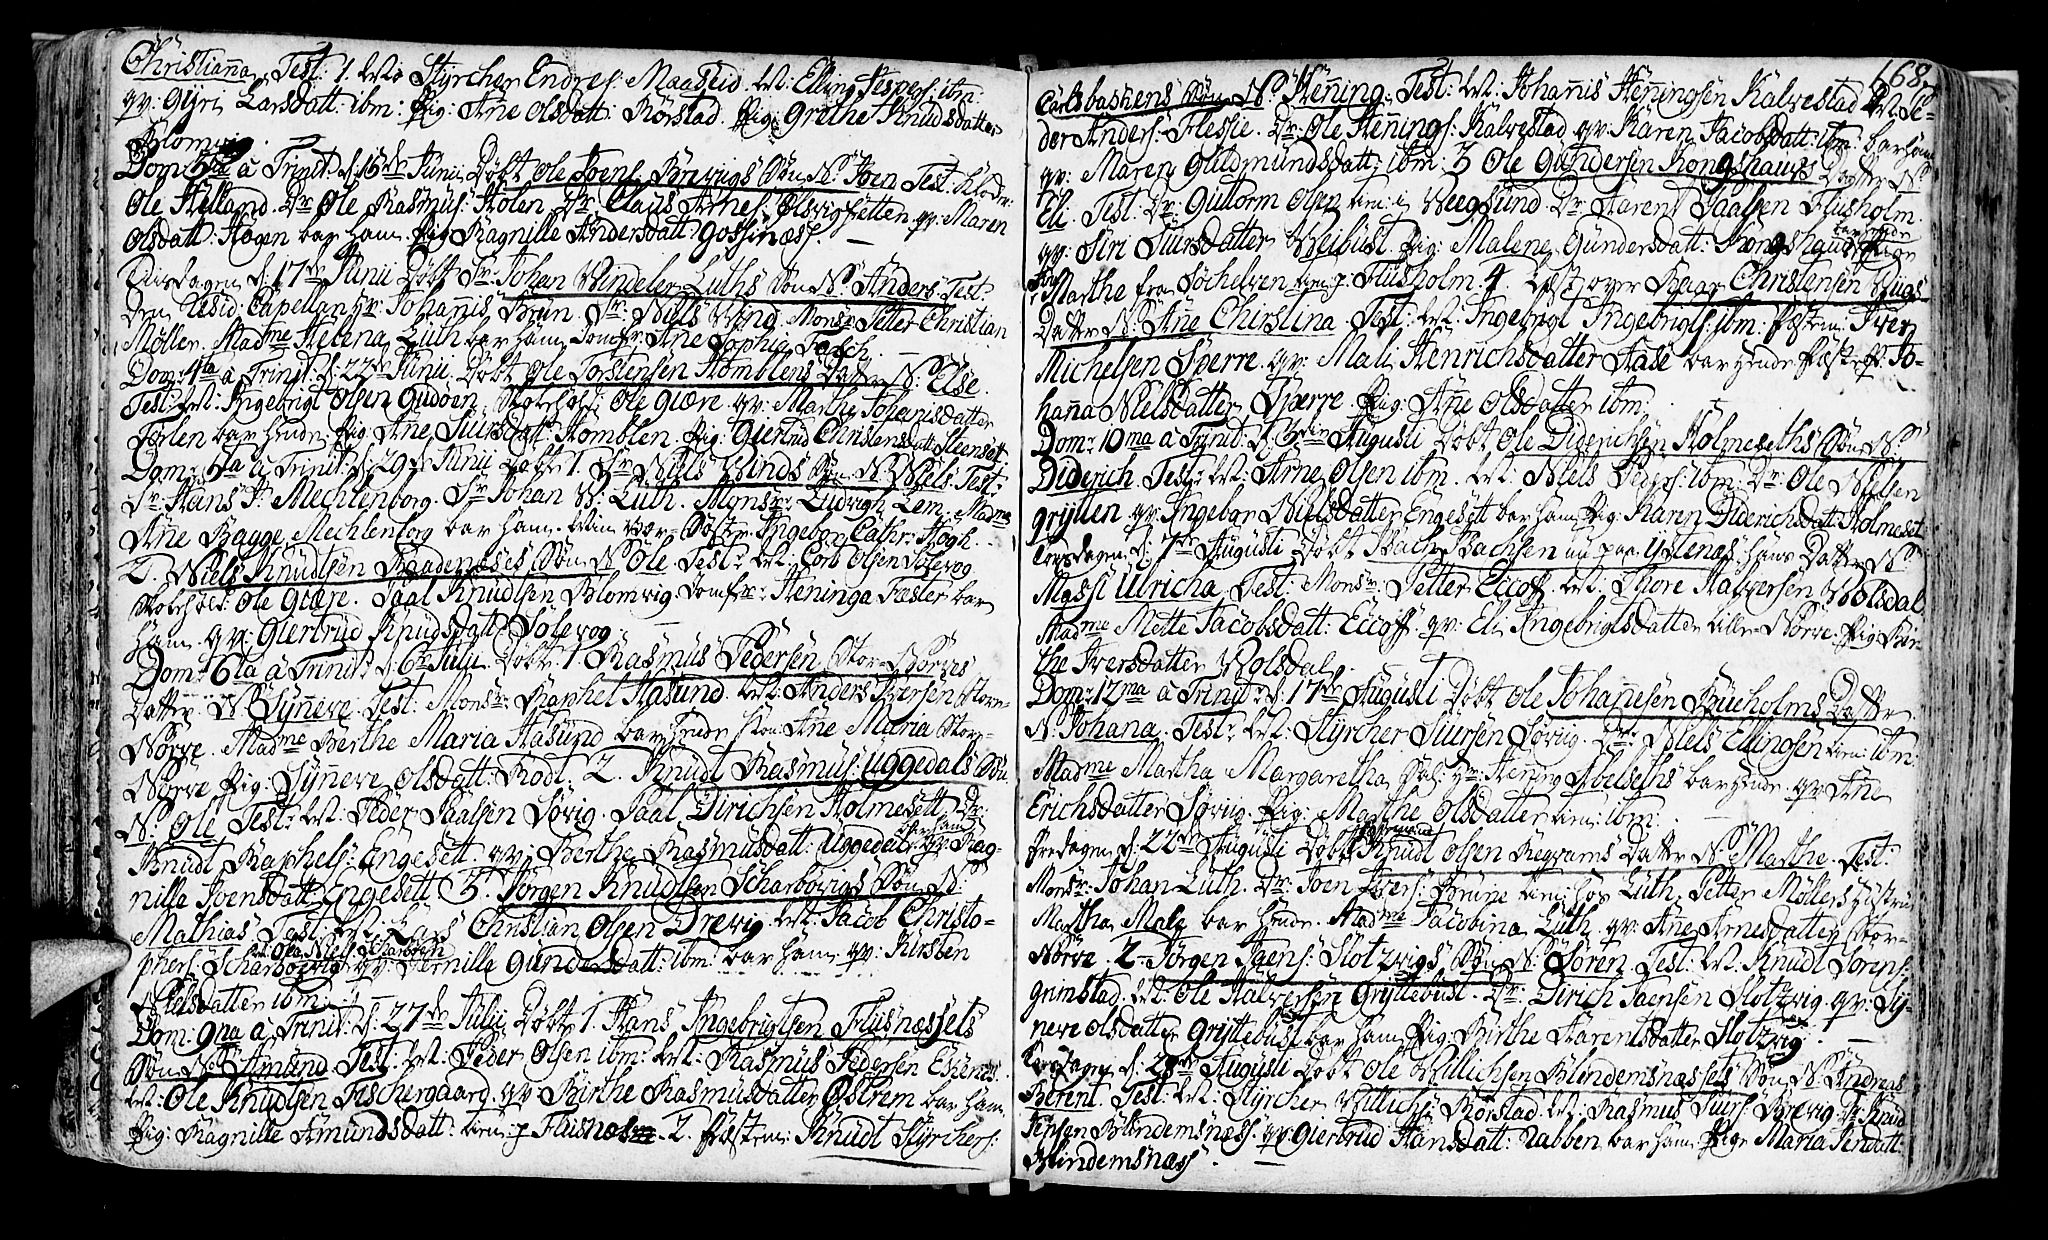 Christiana, Test: 1. Vel: Styrcher Endres: Maaseid. Vel: Elling Jespers: ibm:
qv: Gyri Larsdatt: ibm: Pig: Ane Olsdatt: Rørstad. Pig: Grethe Knudsdatter
Blomvig.
Dom: 3tia à Trinit: d: 15de Junii Døbt Ole Joens: Brevigs Søn N: Joen Test:
Ole Helland. Dr: Ole Rasmus: Holen Dr: Claus Arnes: Olsvigsetten. qv: Maren
Olsdatt: Hagen bar ham. Pig Ragnille Andersdatt: Gossinæss.
Tirsdagen d: 17de Junii Døbt Sr: Johan Vindeler Luths Søn N: Anders Test:
Den Resid: Capellan Hr: Johannis Brun. Sr: Niels Vind. Monsr: Petter Christian
Møller. Madme Helena Luth bar ham Jomfr: Ane Sophia Falch.
Dom: 4ta à Trinit: d: 22de Junii Døbt Ole Torstensen Homblens Datter N: Else.
Test: Vel: Ingebrigt Olsen Gudøen, Skoleholder Ole Giære. qv: Marthe Johanisdatter
Førlen bar hende. Pig: Ane Siursdatt: Homblen. Pig: Giertrud Christensdatt: Steensæt
Dom: 5ta à Trinit: d: 29de Junii Døbt 1. Sr: Niels Vinds Søn N: Niels Test:
Sr: Hans Pr: Mechlenborg. Sr: Johan V: Luth. Monsr: Ludvigh Lem. Madme
Ane Bagge Mechlenborg bar ham. Ingebor Cathr: Høgh.
2. Niels Knudtsen Raadenæses Søn N: Ole. Test: Vel: Corb Olsen Solevog
Skoleholder: Ole Giære. Paal Knudtsen Blomvig. Jomfr: Heninga Fester bar
ham. qv: Giertrud Knudsdatt: Solevog
Dom: 6ta à Trinit: d: 6te Julii Døbt 1. Rasmus Pedersen Stor-Nørves
Datter N: Synneve. Test: Monsr: Raphel Hasund. Vel: Anders Iversen Store-
Nørve. Madme Berthe Maria Hasund bar hende Kon: Ane Maria Stor-
Nørve Pig: Synneve Olsdatt: Rødt. 2. Knudt Rasmus: Uggedals Søn
N: Ole Test: Vel: Peder Paalsen Sørig. Paal Dirichsen Holmesett. Dr:
Knudt Raphels: Engesett. qv: Berthe Rasmusdatt: Uggedal bar ham Pig: Rag-
nilla Joensdatt: Engesett. 3. Jørgen Knudtsen Scharbøvigs Søn N:
Mathias. Test: Vel: Lars Christian Olsen Drevig. Vel: Jacob Christo-
phers: Scharbøvig Vel: Ole Niels: Scharbøvig qv: Pernilla Gundersdatt: ibm: bar ham qv: Kirsten
Nielsdatter ibm:
Dom: 9na à Trinit: d: 27de Julii Døbt 1. Hans Ingebrigtsen Flusnæssets
Søn N: Amund. Test: Vel: Peder Olsen ibm: Vel: Rasmus Pedersen Espenes.
Vel: Ole Knudtsen Fischergaard. qv: Birthe Rasmusdatter Østrem bar ham
Pig: Ragnille Amundsdatt: tien: p Flusnæs. 2. Postem: Knudt Styrchers:
168.
Carlsbaskens Søn N: Henning. Test: Vel: Johannis Henningsen Kalvestad Vel: Pe-
der Anders: Flessie. Dr: Ole Hennings: Kalvestad qv: Karen Jacobsdatt: ibm: bar ham
qv: Maren Guldmundsdatt: ibm: 3. Ole Gundersen Kongshaugs Datter N:
Eli. Test: Dr: Guttorm Olsen tien: i Veegsund. Dr: Aarent Paalsen Flusholm.
qv: Siri Siursdatter Veibust. Pig: Malene Gundersdatt: Kongshaug bar hende Pige
Marthe fra Søchelven tien: p: Flusholm. 4. Løst: over Haar Christensen Vugs
Datter N: Ane Christina. Test: Vel: Ingebrigt Ingebrigts: ibm: Postem: Iver
Michelsen Sperre. qv: Mali Henrichsdatter Aase bar hende Jo-
hanna Nielsdatter Sperre. Pig: Ane Olsdatter ibm:
Dom: 10ma à Trinit: d: 3die Augusti Døbt Ole Diderichsen Holmeseths Søn N:
Diderich. Test: Vel: Arne Olsen ibm. Vel: Niels Peders: ibm: Dr: Ole Nielsen
Grytten qv: Ingebor Nielsdatter Engesett bar ham Pig: Karen Diderichsdatt: Holmeset
Torsdagen d: 7de Augusti Døbt Bach Bachsen nu paa Ytlenæs hans Datter N:
Massi Ulricha. Test: Monsr: Petter Eccoff. Vel: Thore Halversen Volsdal
Madme Mette Jacobsdatt: Eccoff. qv: Eli Ingebrigtsdatter Lille-Nørve. Pig Bir-
the Iversdatter Volsdal.
Dom: 12ma à Trinit: d: 17de Augusti Døbt Ole Johannesen Bueholms Datter
N: Johana. Test: Vel: Styrcher Siursen Sørig. Dr: Niels Ellingsen tien: ibm:
Madme Martha Margaretha Sal: Hr: Henning Abelseths bar hende. qv: Ane
Erichsdatter Sørig. Pig: Marthe Olsdatter tien: ibm:
Fredagen d: 22de Augusti Døbt Knudt Olsen Regvams Datter N: Marthe. Test:
Monsr: Johan Luth. Dr: Joen Ivers: Brune tien: hos Luth. Petter Møllers Hustru
Martha Male bar hende. Madme Jacobina Luth. qv: Ane Arnesdatter Stor-
Nørve 2. Jørgen Jaens: Slotzvigs Søn N: Søren. Test: Vel: Knudt Sørens:
Grimstad. Vel: Ole Halversen Gryttebust. Dr: Dirich Jaensen Slotzvig. qv: Sy-
neve Olsdatter Gryttebust bar ham Pig: Birthe Aarentsdatter Slotzvig
Torsdagen d: 28de Augusti Døbt Ole Villichsen Blindemsnæssets Søn N: Andreas
Berent. Test: Vel: Styrcher Villichs: Rørstad. Vel: Rasmus Siurs: Brevig. Dr: Knud
Jensen Blindemsnæss. qv: Giertrud Hansdatt: Rabben bar ham. Pige Maria
Blindemsnæss.